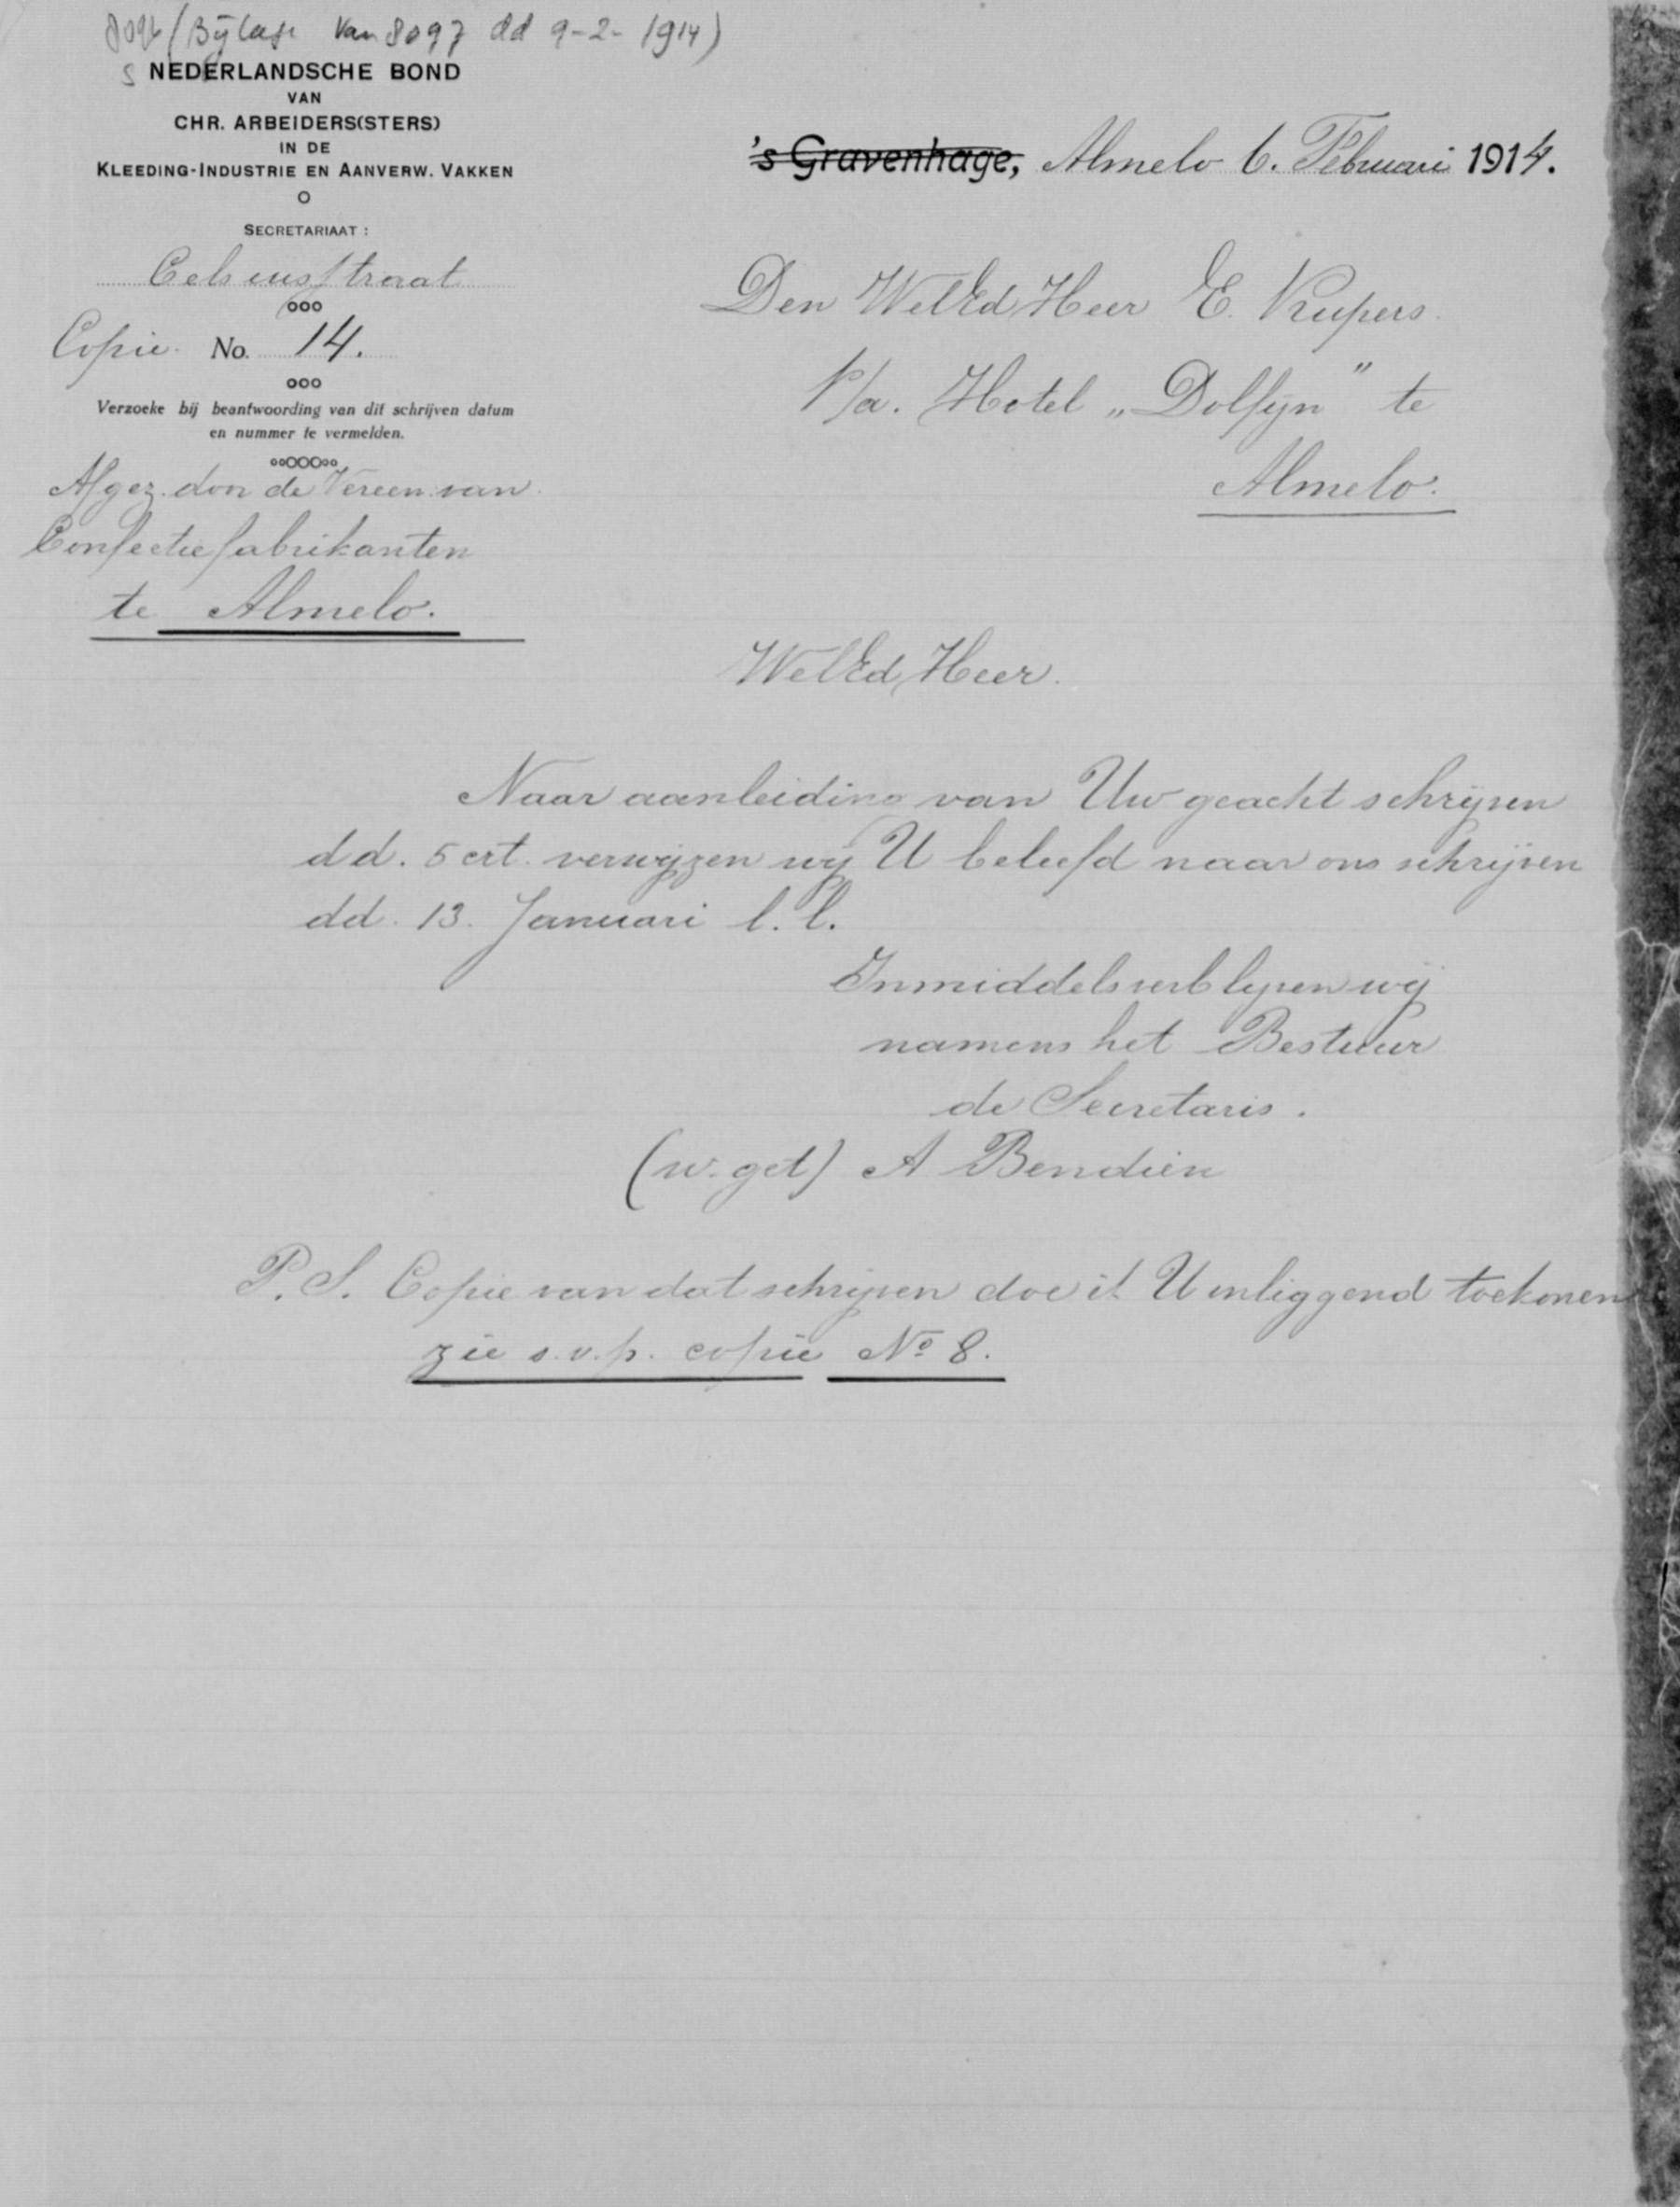 (Bijlage van 8097 dd 9-2-1914)
NEDERLANDSCHE BOND
VAN
CHR. ARBEIDERS(STERS)
IN DE
KLEEDING-INDUSTRIE EN AANVERW. VAKKEN
SECRETARIAAT:
Celsiusstraat
Copie No. 14.
Verzoeke bij beantwoording van dit schrijven datum
en nummer te vermelden.
Afgez. door de Vereen. van
Confectiefabrikanten
te Almelo.
's Gravenhage, Almelo 6. Februari 1914.
Den WelEd Heer E. Kupers.
p/a. Hotel „Dolfijn" te
Almelo.
WelEd, Heer.
Naar aanleiding van Uw geacht schrijven
dd. 5 crt. verwijzen wij U beleefd naar ons schrijven
dd. 13. Januari l.l.
Inmiddels verblijven wij
namens het Bestuur
de Secretaris.
(w. get) A Bendien
P.S. Copie van dat schrijven doe ik U inliggend toekomen
zie s.v.p. copie No 8.